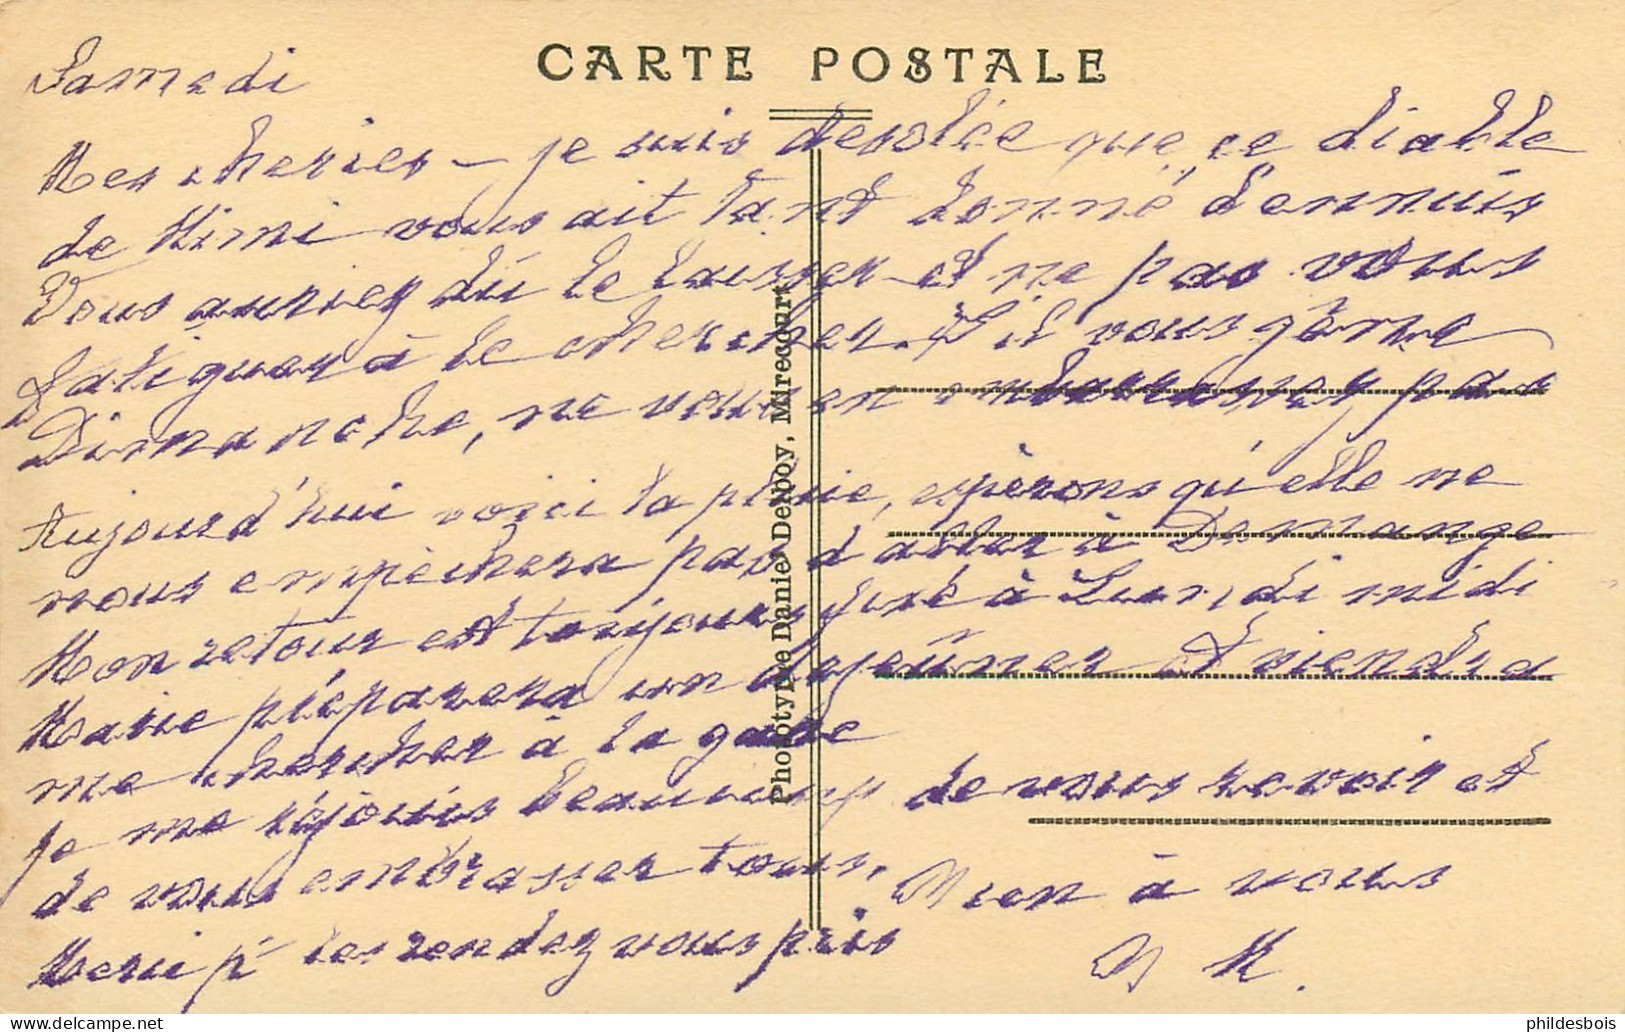 CARTE POSTALE
Samedi
Mes cheries – je suis desolée que ce diable
de Mimi vous ait tant donné d'ennuis
Vous auriez dû le laisser et ne pas vous
fatiguer à le chercher. S'il vous gêne
Dimanche, ne vous en embarrassez pas
Aujourd'hui voici la pluie, espérons qu'elle ne
nous empêchera pas d'aller à Domange
Mon retour est toujours fixé à Lundi midi
Marie préparera un dejeûner et viendra
me chercher à la gare
je me réjouis beaucoup de vous revoir et
de vous embrasser tous. Bien à vous
Merci pr les rendez vous pris
M.
Phototypie Daniel Delboy, Mirecourt
phildesbois